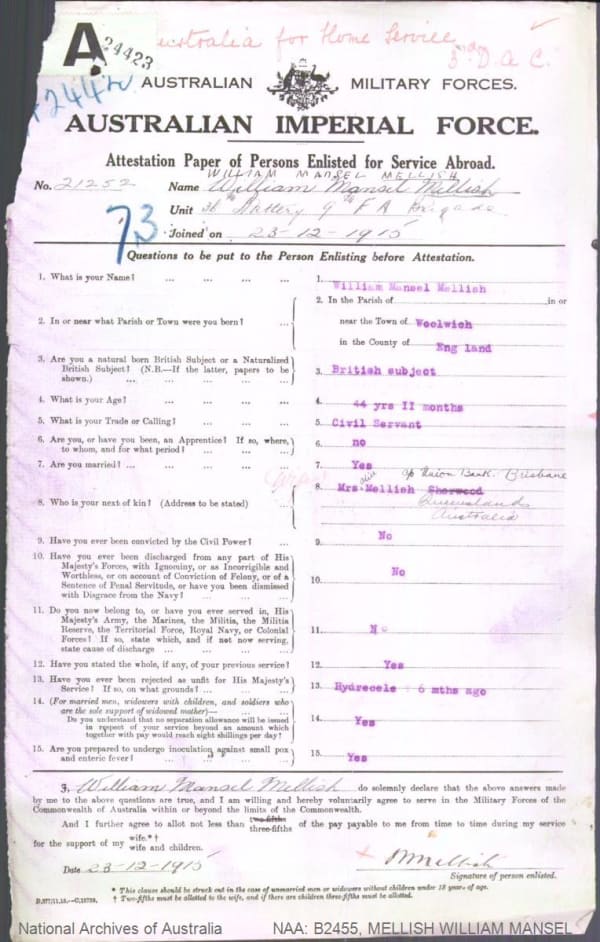 Australia for Home Service
3rd D.A.C.
A
24423
AUSTRALIAN MILITARY FORCES.
AUSTRALIAN IMPERIAL FORCE.
Attestation Paper of Persons Enlisted for Service Abroad.
WILLIAM MANSEL MELLISH
No. 21252 Name William Mansel Mellish
Unit 36th Battery 9th F A Brigade
73
Joined on 23-12-1915
Questions to be put to the Person Enlisting before Attestation.
1. What is your Name? ... ... ... ... 1. William Mansel Mellish
2. In or near what Parish or Town were you born? ... 2. In the Parish of in or
near the Town of Woolwich
in the County of England
3. Are you a natural born British Subject or a Naturalized
British Subject? (N.B.—If the latter, papers to be
shown.) ... ... ... ... 3. British subject
4. What is your Age? ... ... ... ... 4. 44 yrs II months
5. What is your Trade or Calling? ... ... ... 5. Civil Servant
6. Are you, or have you been, an Apprentice? If so, where,
to whom, and for what period? ... ... ... 6. no
7. Are you married? ... ... ... ... 7. Yes
c/o Union Bank. Brisbane
8. Who is your next of kin? (Address to be stated) ... 8 Mrs. Mellish Sherwood
Queensland
Australia
9. Have you ever been convicted by the Civil Power? ... 9. No
10. Have you ever been discharged from any part of His
Majesty's Forces, with Ignominy, or as Incorrigible and
Worthless, or on account of Conviction of Felony, or of a
Sentence of Penal Servitude, or have you been dismissed
with Disgrace from the Navy? ... ... ... 10. No
11. Do you now belong to, or have you ever served in, His
Majesty's Army, the Marines, the Militia, the Militia
Reserve, the Territorial Force, Royal Navy, or Colonial
Forces? If so, state which, and if not now serving,
state cause of discharge ... ... ... 11. No
12. Have you stated the whole, if any, of your previous service? 12. Yes
13. Have you ever been rejected as unfit for His Majesty's
Service? If so, on what grounds? ... ... ... 13. Hydrecele 6 mths ago
14. (For married men, widowers with children, and soldiers who
are the sole support of widowed mother)—
Do you understand that no separation allowance will be issued
in respect of your service beyond an amount which
together with pay would reach eight shillings per day? 14. Yes
15. Are you prepared to undergo inoculation against small pox
and enteric fever? ... ... ... 15. Yes
I, William Mansel Mellish do solemnly declare that the above answers made
by me to the above questions are true, and I am willing and hereby voluntarily agree to serve in the Military Forces of the
Commonwealth of Australia within or beyond the limits of the Commonwealth.
And I further agree to allot not less than two-fifths three-fifths of the pay payable to me from time to time during my service
for the support of my wife.*† wife and children.
Date 23-12-1915 WMellish
Signature of person enlisted.
* This clause should be struck out in the case of unmarried men or widowers without children under 18 years of age.
† Two-fifths must be allotted to the wife, and if there are children three-fifths must be allotted.
National Archives of Australia NAA: B2455, MELLISH WILLIAM MANSEL